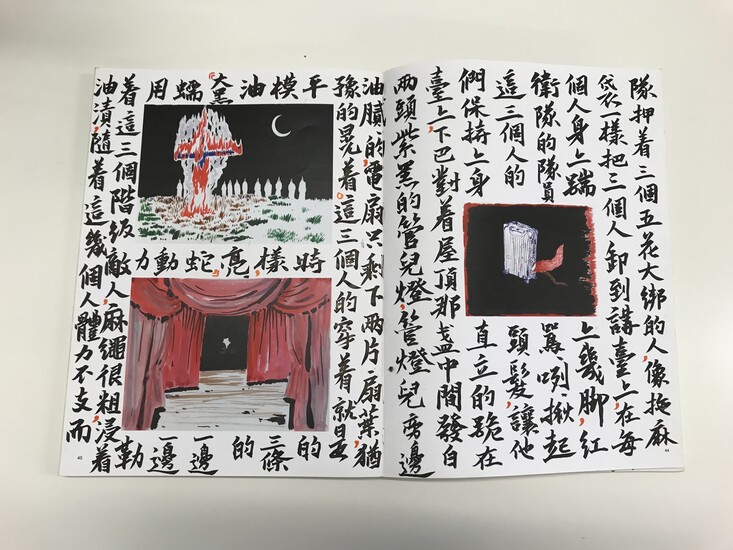 隊押着三個五花大綁的人,像拖麻
袋一樣把三個人卸到講臺上,在每
個人身上踹上幾脚,紅
衛隊的隊員罵咧,揪起
這三個人的頭髮讓他
們保持上身直立的跪在
臺上,下巴對着屋頂那盞中間發白
兩頭紫黑的管兒燈,管燈兒旁邊
44
油膩的,電扇只剩下兩片扇葉,猶
豫的晃着。這三個人的穿着就是五
平時的
模樣,三條
油亮,的
黑蛇一邊
蠕動一邊
用力勒
着這三個階級敵人,麻繩很粗,浸着
油漬,隨着這幾個人體力不支而
45